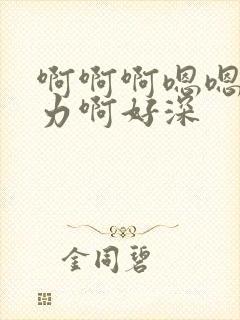 啊啊啊嗯嗯
力啊好深
金同碧